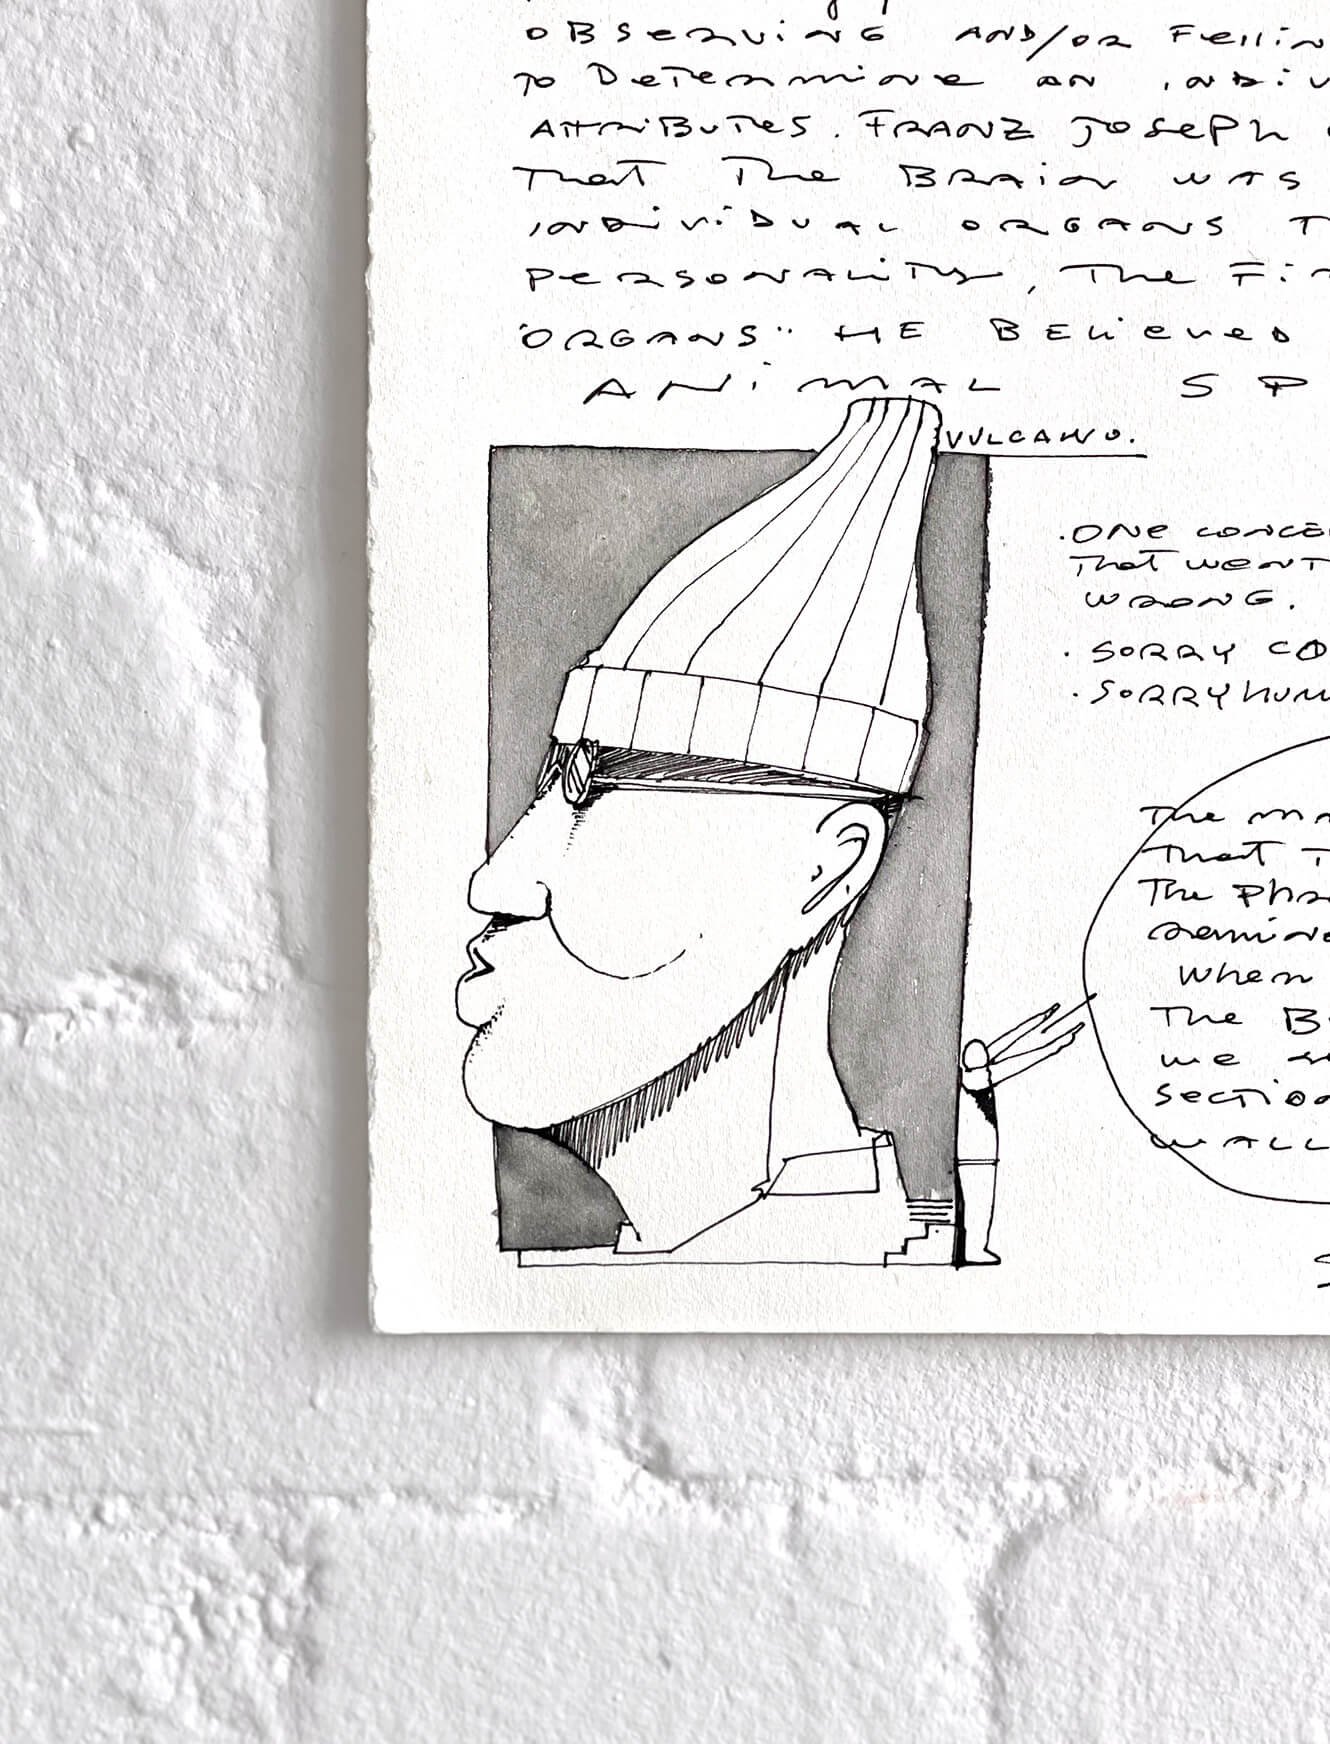 OBSERVING AND/OR FELLIN
TO DETERMINE AN INDIV
ATTRIBUTES. FRANZ JOSEPH
THAT THE BRAIN WAS
INDIVIDUAL ORGANS T
PERSONALITY, THE FIR
"ORGANS" HE BELIEVED
ANIMAL SP
VULCANO.
·ONE CONCE
THAT WENT
WRONG.
·SORRY CO
·SORRY HUM
THE MA
THAT T
THE PHR
REMIND
WHEN
THE B
WE
SECTIO
WALL
S